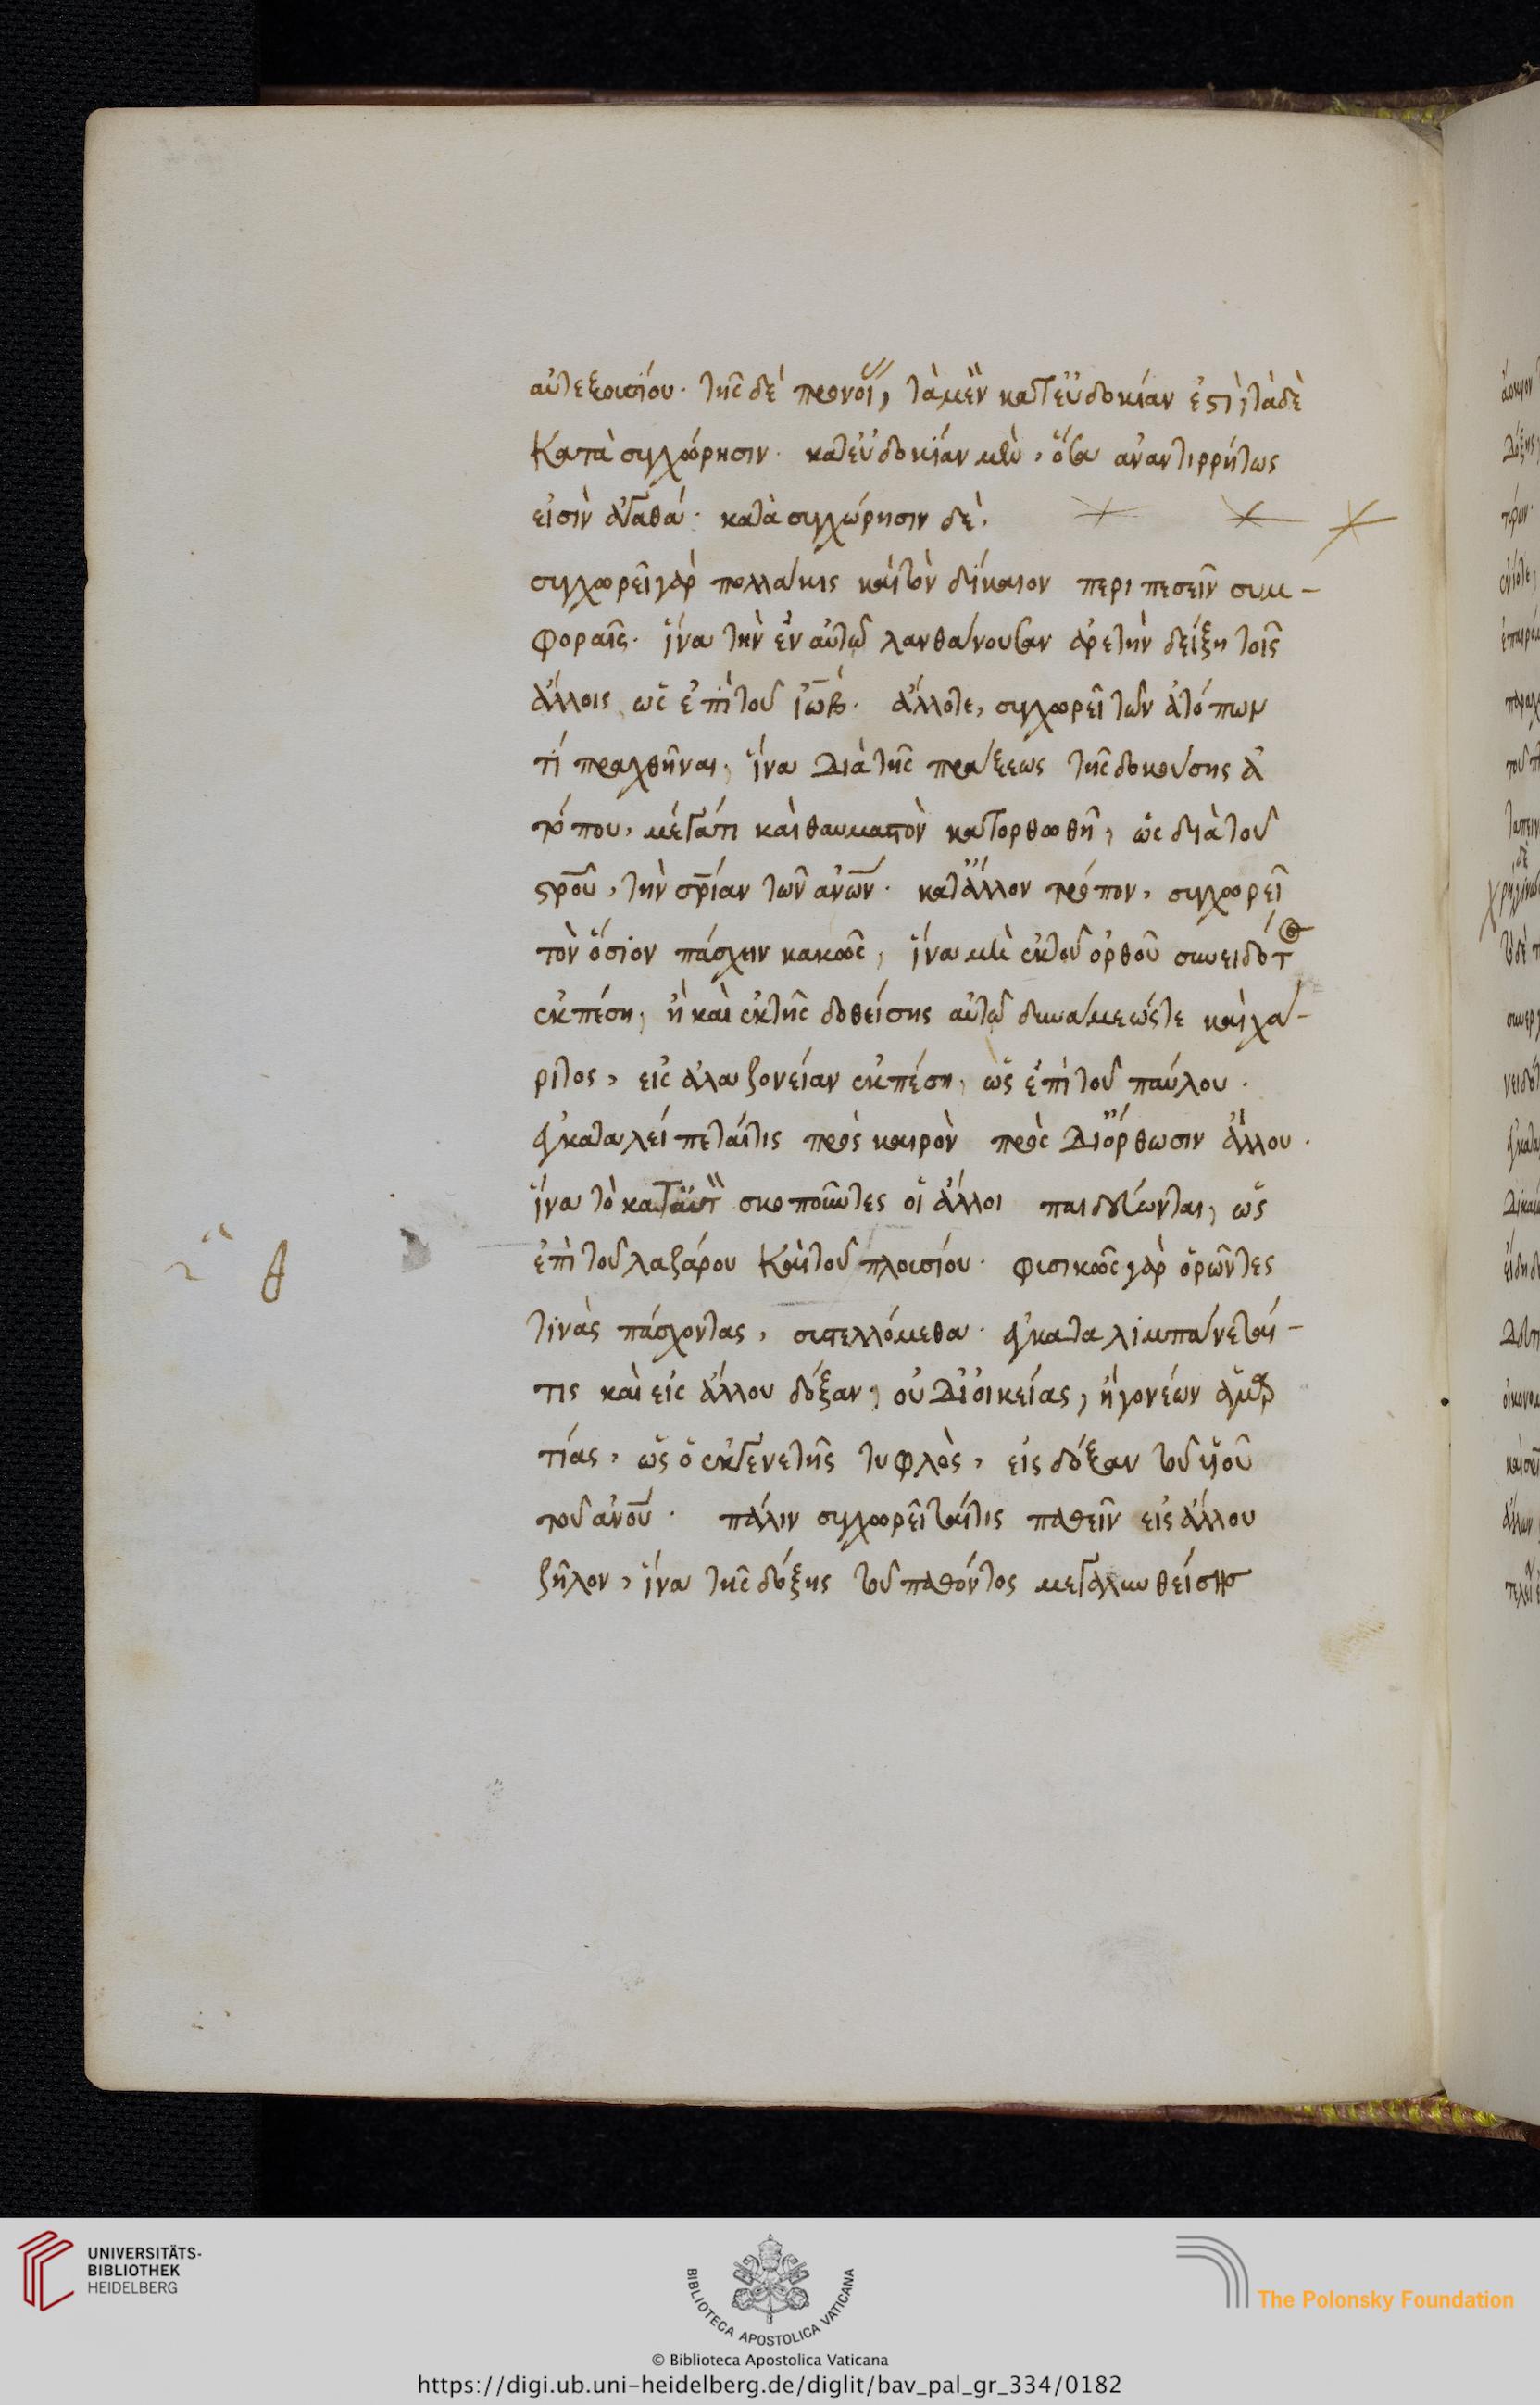 αὐτεξουσίου. τῆς δὲ προνοί, τὰ μὲν κατ εὐδοκίαν ἐστὶ, τὰ δὲ
κατὰ συγχώρησιν. κατεὐδοκίαν μὲν, ὅσα ἀναντιρρήτως
εἰσὶν ἀγαθά. κατὰ συγχώρησιν δὲ.
συγχωρεῖ γὰρ πολλάκις καὶ τὸν δίκαιον περιπεσεῖν συμ-
φοραῖς. ἵνα τὴν ἐν αὐτῷ λανθάνουσαν ἀρετὴν δείξη τοῖς
ἄλλοις ὡς ἐπὶ τοῦ ἰὼβ. ἄλλοτε, συγχωρεῖ τῶν ἀτόπων
τί πραχθῆναι, ἵνα διὰ τῆς πράξεως τῆς δοκούσης ἀ
τόπου, μέγάτι καὶ θαυμαστὸν κατορθωθῆ, ὡς διὰ τοῦ
σρ̅οῦ, τὴν σρ̅ίαν τῶν ἀνω̅ν. κατ ἄλλον τρόπον, συγχωρεῖ
τὸν ὅσιον πάσχειν κακῶς, ἵνα μὴ ἐκ τοῦ ὀρθοῦ συνειδότ
ἐκπέση, ἢ καὶ ἐκ τῆς δοθείσης αὐτῷ δυνάμεώς τε καὶ χά-
ριτος, εἰς ἀλαζονείαν ἐκπέση, ὡς ἐπὶ τοῦ παύλου.
ἐγκαταλείπεταί τις πρὸς καιρὸν πρὸς διόρθωσιν ἄλλου.
ἵνα τὸ κατ αὐτ σκοποῦντες οἱ ἄλλοι παιδεύωνται, ὡς
ἐπὶ τοῦ λαζάρου καὶ τοῦ πλουσίου. φυσικῶς γὰρ ὁρῶντες
τινὰς πάσχοντας, συστελλόμεθα. ἐγκαταλιμπάνεταί-
τις καὶ εἰς ἄλλου δόξαν, οὐ δι οἰκείας, ἢ γονέων ἁμαρ
τίας, ὡς ὁ ἐκ γενετῆς τυφλὸς, εἰς δόξαν τοῦ υἱοῦ
τοῦ ἀνο̅υ. πάλιν συγχωρεῖταί τις παθεῖν εἰς ἄλλου
ζῆλον, ἵνα τῆς δόξης τοῦ παθόντος μεγαλυνθείσης
UNIVERSITÄTS-
BIBLIOTHEK
HEIDELBERG
BIBLIOTECA APOSTOLICA VATICANA
The Polonsky Foundation
© Biblioteca Apostolica Vaticana
https://digi.ub.uni-heidelberg.de/diglit/bav_pal_gr_334/0182